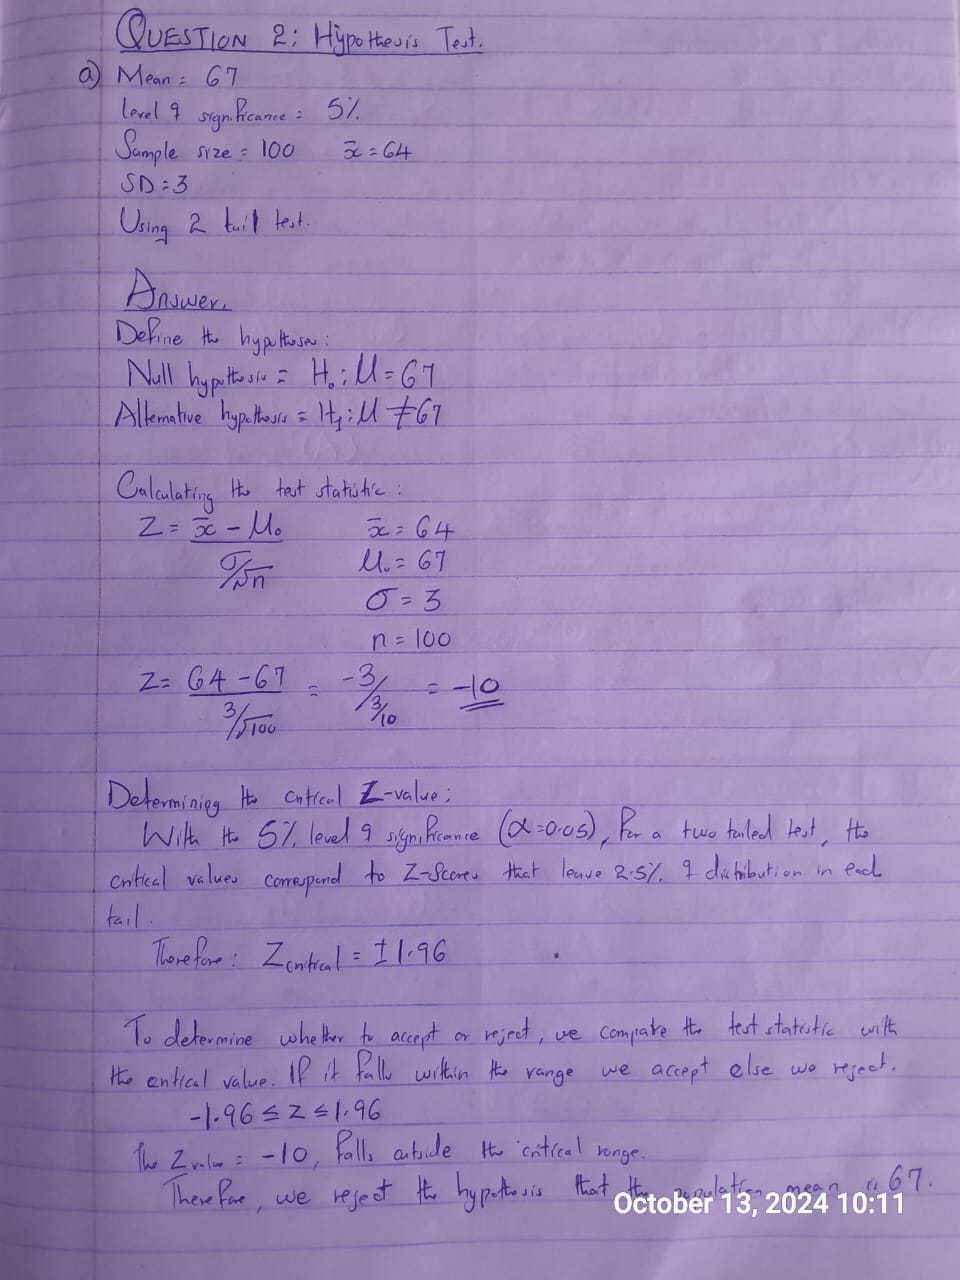 QUESTION 2: Hypothesis Test.
a) Mean = 67
level of significance = 5%
Sample size = 100 x̄ = 64
SD = 3
Using 2 tail test.
Answer.
Define the hypotheses:
Null hypothesis = H₀: μ = 67
Alternative hypothesis = H₁: μ ≠ 67
Calculating the test statistic:
Z = (x̄ - μ₀) / (σ/√n) x̄ = 64
μ₀ = 67
σ = 3
n = 100
Z = (64 - 67) / (3/√100) = -3 / (3/10) = -10
Determining the critical Z-value:
With the 5% level of significance (α = 0.05), for a two tailed test, the
critical values correspond to Z-Scores that leave 2.5% of distribution in each
tail.
Therefore: Z critical = ± 1.96
To determine whether to accept or reject, we compare the test statistic with
the critical value. If it falls within the range we accept else we reject.
-1.96 ≤ Z ≤ 1.96
The Z value = -10, falls outside the critical range.
Therefore, we reject the hypothesis that the population mean is 67.
October 13, 2024 10:11